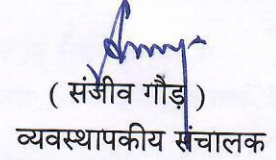 ( संजीव गौड़ )
व्यवस्थापकीय संचालक